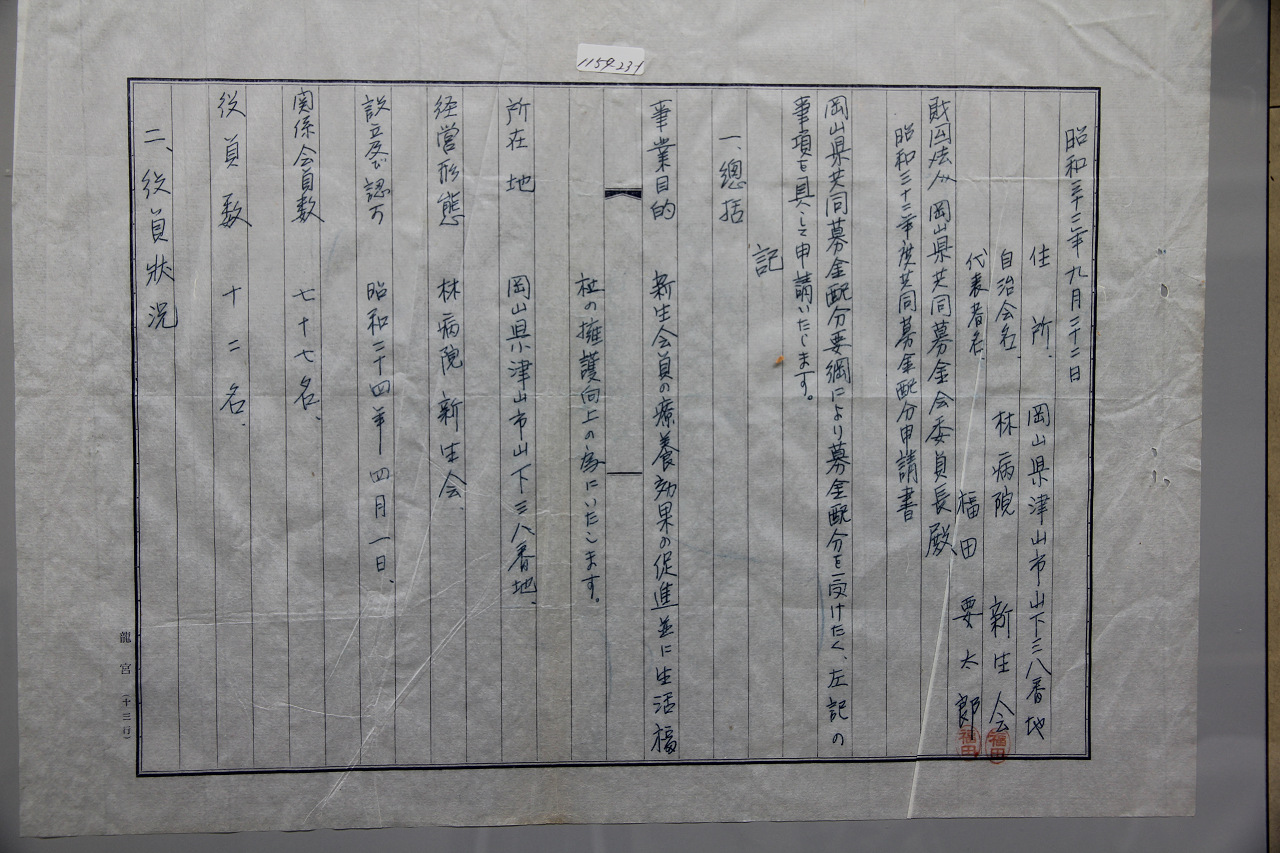 1159231
昭和三十三年九月二十二日
住所、岡山県津山市山下三八番地
自治会名、林病院 新生会
代表者名、福田要太郎
福田
福田
財団法人岡山県共同募金会委員長殿
昭和三十三年度共同募金配分申請書
岡山県共同募金配分要綱により募金配分を受けたく、左記の
事項を具して申請いたします。
記
一、總括
事業目的 新生会員の療養効果の促進並に生活福
祉の擁護向上の為にいたします。
所在地 岡山県津山市山下三八番地、
経営形態 林病院新生会、
設立及び認可 昭和二十四年四月一日、
関係会員数 七十七名、
役員数 十二名、
二、役員狀況
龍宮(十三行)